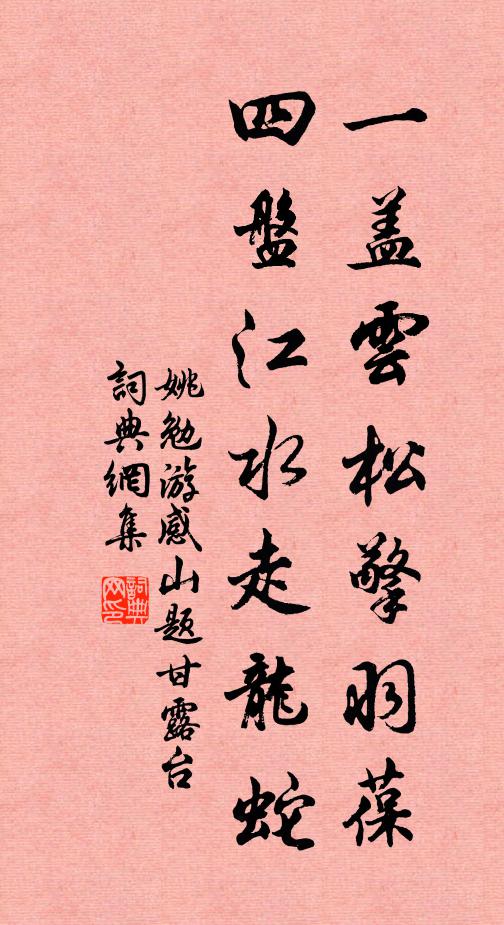 一盖雲松擎羽葆
四盤江水走龍蛇
姚勉游感山题甘露台
詞典網集
詞典网印